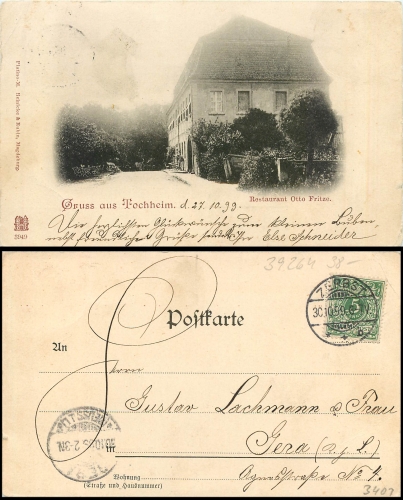 Platino-K. Schröder & Rohde, Magdeburg.
Gruss aus Tochheim. d. 27.10.99.
Restaurant Otto Fritze.
Die herzlichsten Glückwünsche zum kleinen Buben,
nebst freundlichen Grüßen sendet Ihr Else Schneider
39264 38-
ZERBST
30.10.99
5
Postkarte
An
Herrn
Gustav Lachmann u. Frau
in
Gera (R. j. L.)
Wohnung
(Straße und Hausnummer)
Agnesstraße No 4.
3402